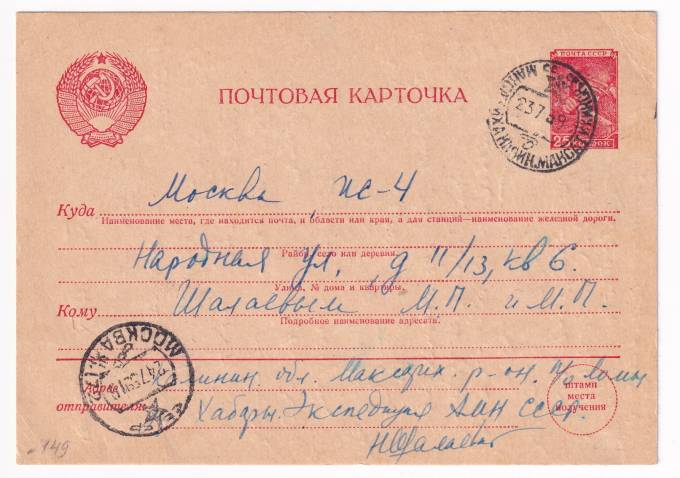 ПОЧТА СССР
ПОЧТОВАЯ КАРТОЧКА
23 7 49
25 КОПЕЕК
Москва, ПС-4
Куда
Наименование места, где находится почта, и области или края, а для станций—наименование железной дороги.
Народная ул, д 11/13, кв 6.
Район, село или деревня.
Улица, № дома и квартиры.
Кому Шалаевым М.П. и М.П.
Подробное наименование адресата.
МОСКВА
Адрес обл. р-он. п/о
отправителя: Экспедиция АН СССР.
штамп
места
получения
149